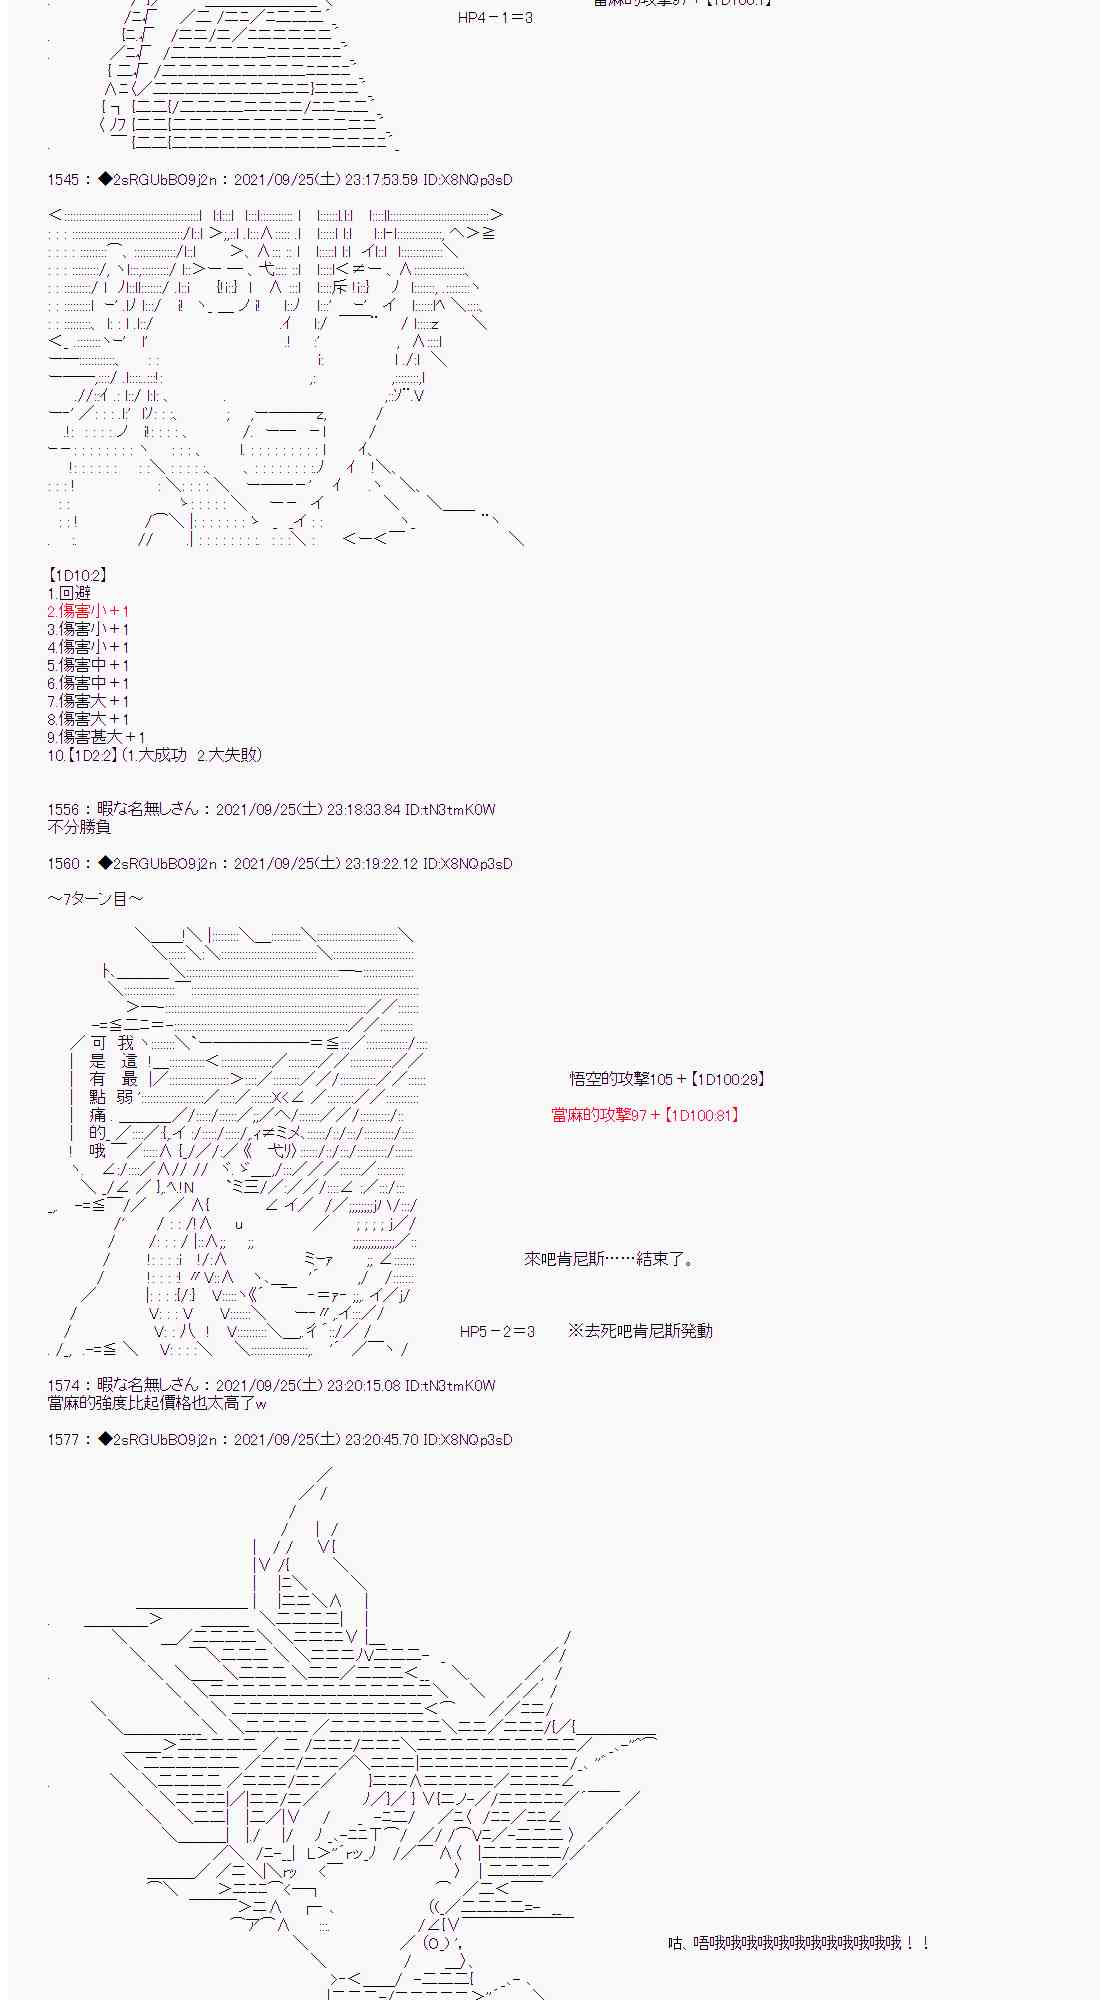 當麻的攻擊97+【1D100:1】
HP4-1=3
1545 : ◆2sRGUbBO9j2n : 2021/09/25(土) 23:17:53.59 ID:X8NQp3sD
【1D10:2】
1.回避
2.傷害小+1
3.傷害小+1
4.傷害小+1
5.傷害中+1
6.傷害中+1
7.傷害大+1
8.傷害大+1
9.傷害甚大+1
10.【1D2:2】(1.大成功 2.大失敗)
1556 : 暇な名無しさん : 2021/09/25(土) 23:18:33.84 ID:tN3tmK0W
不分勝負
1560 : ◆2sRGUbBO9j2n : 2021/09/25(土) 23:19:22.12 ID:X8NQp3sD
~7ターン目~
我這最弱
可是有點痛的哦
悟空的攻擊105+【1D100:29】
當麻的攻擊97+【1D100:81】
來吧肯尼斯……結束了。
HP5-2=3 ※去死吧肯尼斯発動
1574 : 暇な名無しさん : 2021/09/25(土) 23:20:15.08 ID:tN3tmK0W
當麻的強度比起價格也太高了w
1577 : ◆2sRGUbBO9j2n : 2021/09/25(土) 23:20:45.70 ID:X8NQp3sD
咕、唔哦哦哦哦哦哦哦哦哦哦哦哦!!